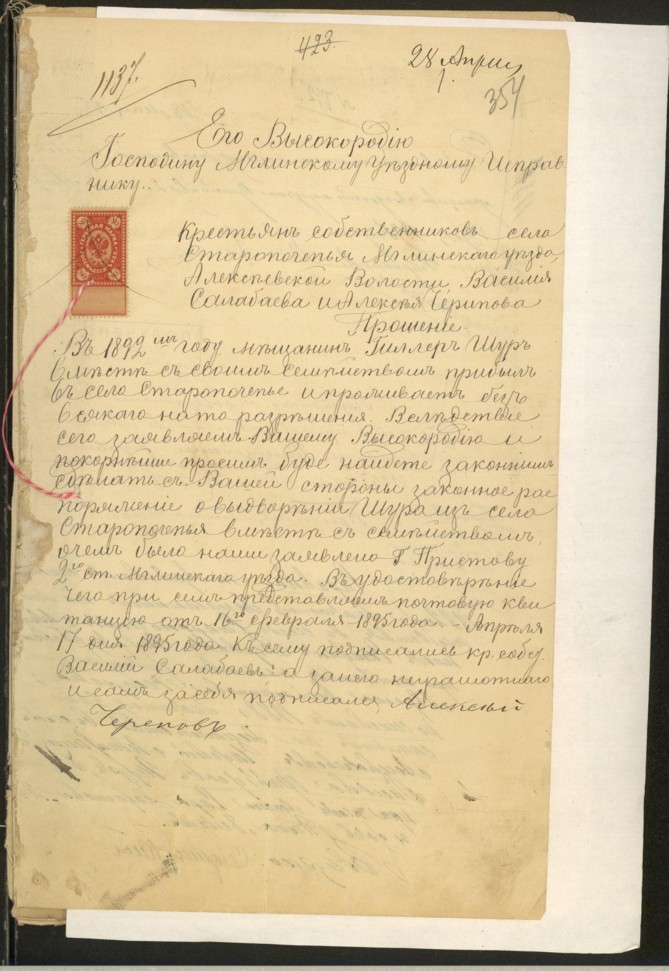 423.
28 Април
1137.
354
Его Высокородію
Господину Мглинскому Уѣздному Исправ-
нику..
Крестьянъ собственниковъ села
Старопочепья Мглинскаго уѣзда,
Алексѣевской Волости, Василія
Салабаева и Алексѣя Черепова
Прошеніе
Въ 1892 году мѣщанинъ Гиллеръ Шуръ
вмѣстѣ съ своимъ семѣйствомъ прибылъ
въ село Старопочепье и проживаетъ безъ
всякаго на то разрѣшенія. Вслѣдствіе
сего заявляемъ Вашему Высокородію и
покорнѣйше просимъ буде найдете законнымъ
сдѣлать съ Вашей стороны законное рас
поряженіе о выдвореніи Шура изъ села
Старопочепья вмѣстѣ съ семѣйствомъ,
о чемъ было нами заявлено Г. Приставу
2го ст. Мглинскаго уѣзда. Въ удостовѣреніе
чего при семъ представляемъ почтовую кви
танцію отъ 16го февраля 1895 года. Апрѣля
17 дня 1895 года. Къ сему подписались кр. собст.
Василій Салабаевъ: а за него неграмотнаго
и самъ за себя подписался Алексѣй
Череповъ.